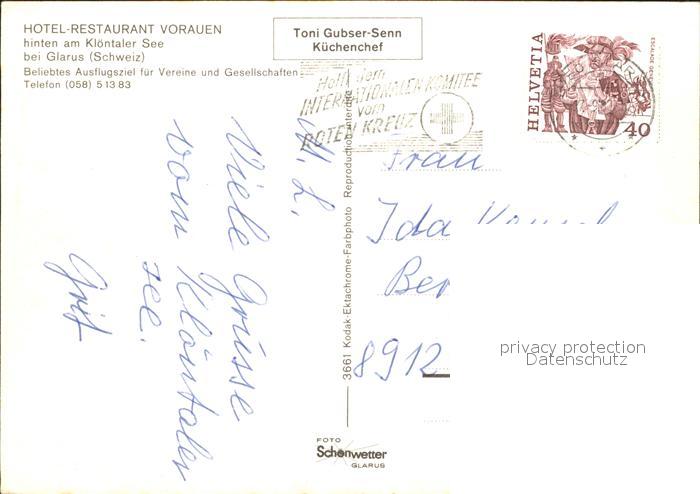 HOTEL-RESTAURANT VORAUEN
hinten am Klöntaler See
bei Glarus (Schweiz)
Beliebtes Ausflugsziel für Vereine und Gesellschaften
Telefon (058) 5 13 83
Toni Gubser-Senn
Küchenchef
Helft dem
INTERNATIONALEN KOMITEE
vom
ROTEN KREUZ
HELVETIA
40
M. L.
Viele Grüsse
vom Klöntaler
see.
Grit
3661 Kodak-Ektachrome-Farbphoto Reproduction interdite
Frau
Ida
8912
privacy protection
Datenschutz
FOTO
Schönwetter
GLARUS